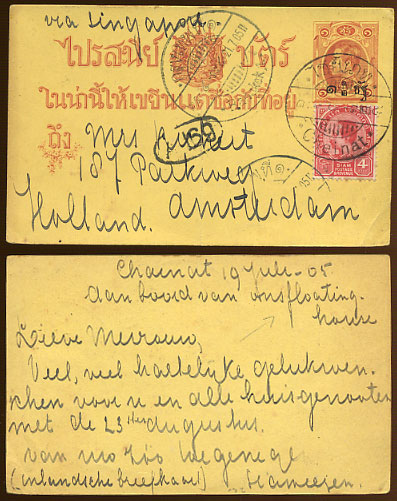 via Singapore.
ไปรสนีย์ บัตร์
ในน่านี้ให้เขียนแต่ชื่อกับที่อยู่
ถึง
Mrs
69
187 Parkweg
Amsterdam
Holland.
Chainat
4
Chainat 19 Juli - 05
Aan boord van ons floating-
house
Lieve Mevrouw,
Veel, veel hartelijke gelukwen-
schen voor u en alle huisgenooten
met de 23sten Augustus.
van uw
(inlandsche briefkaart) Siameezen.